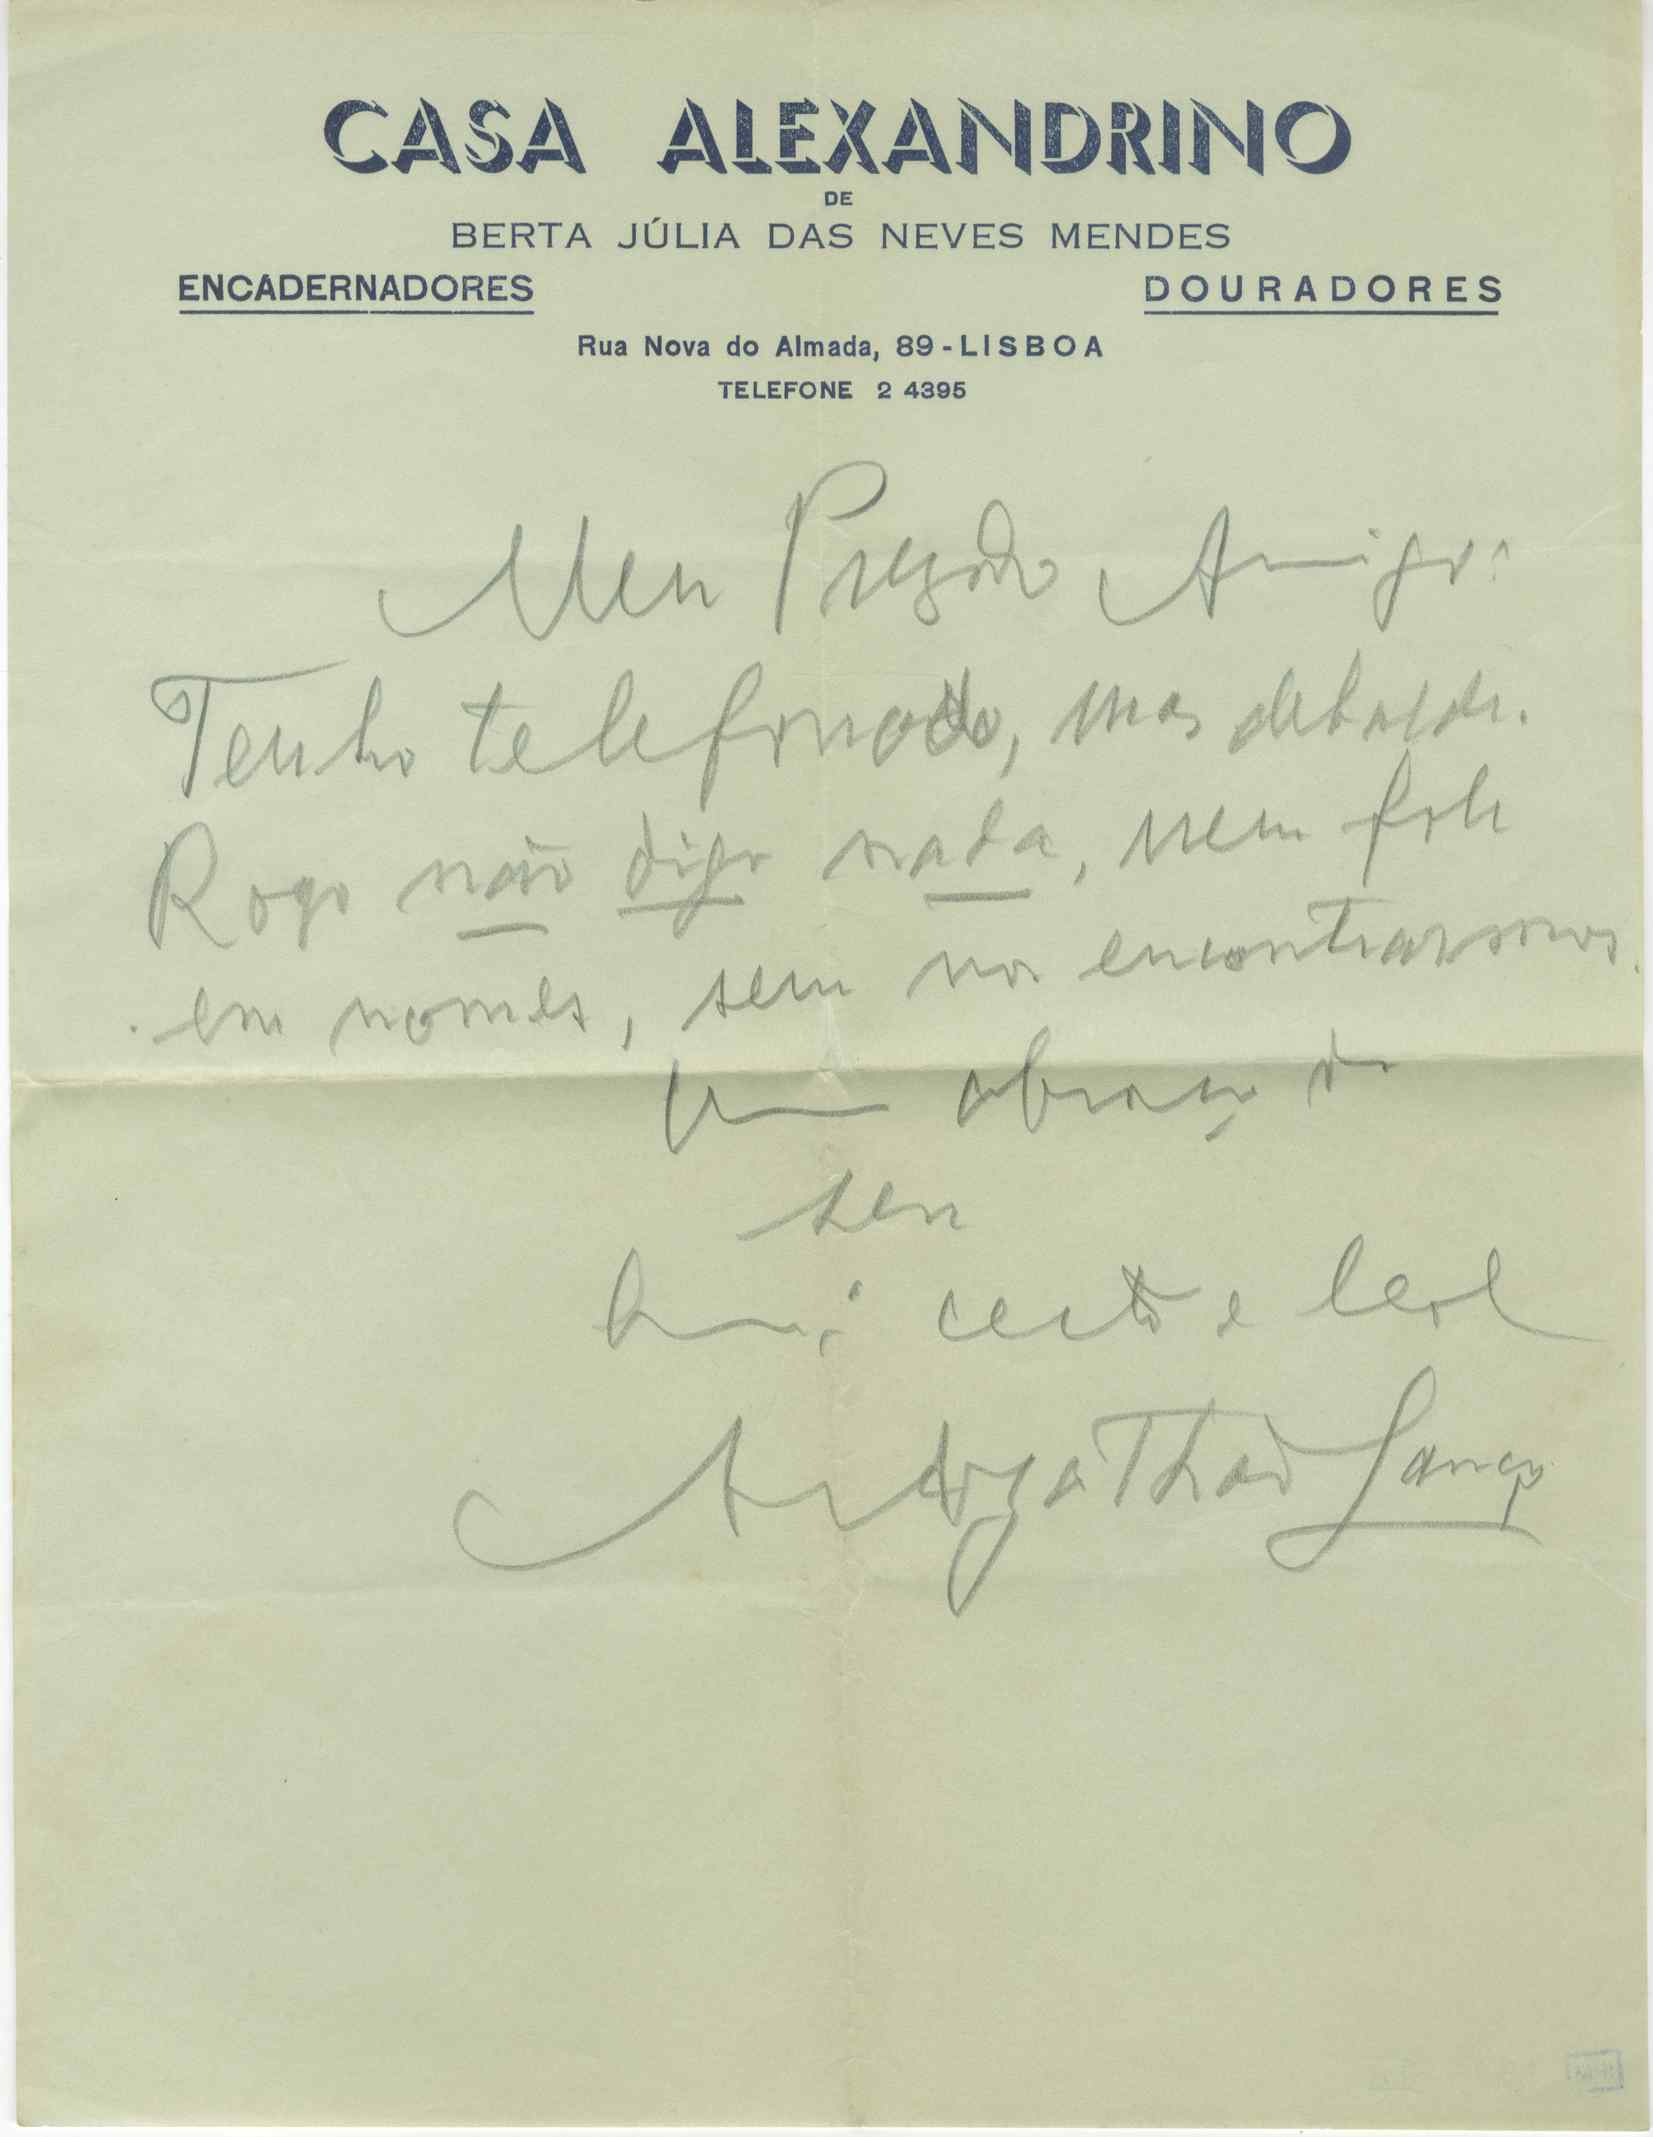 CASA ALEXANDRINO
DE
BERTA JÚLIA DAS NEVES MENDES
ENCADERNADORES DOURADORES
Rua Nova do Almada, 89 - LISBOA
TELEFONE 2 4395
Meu Prezado Amigo:
Tenho telefonado, mas debalde.
Rogo não diga nada, nem fale
em nomes, sem nos encontrarmos.
Um abraço do
seu
certo e leal